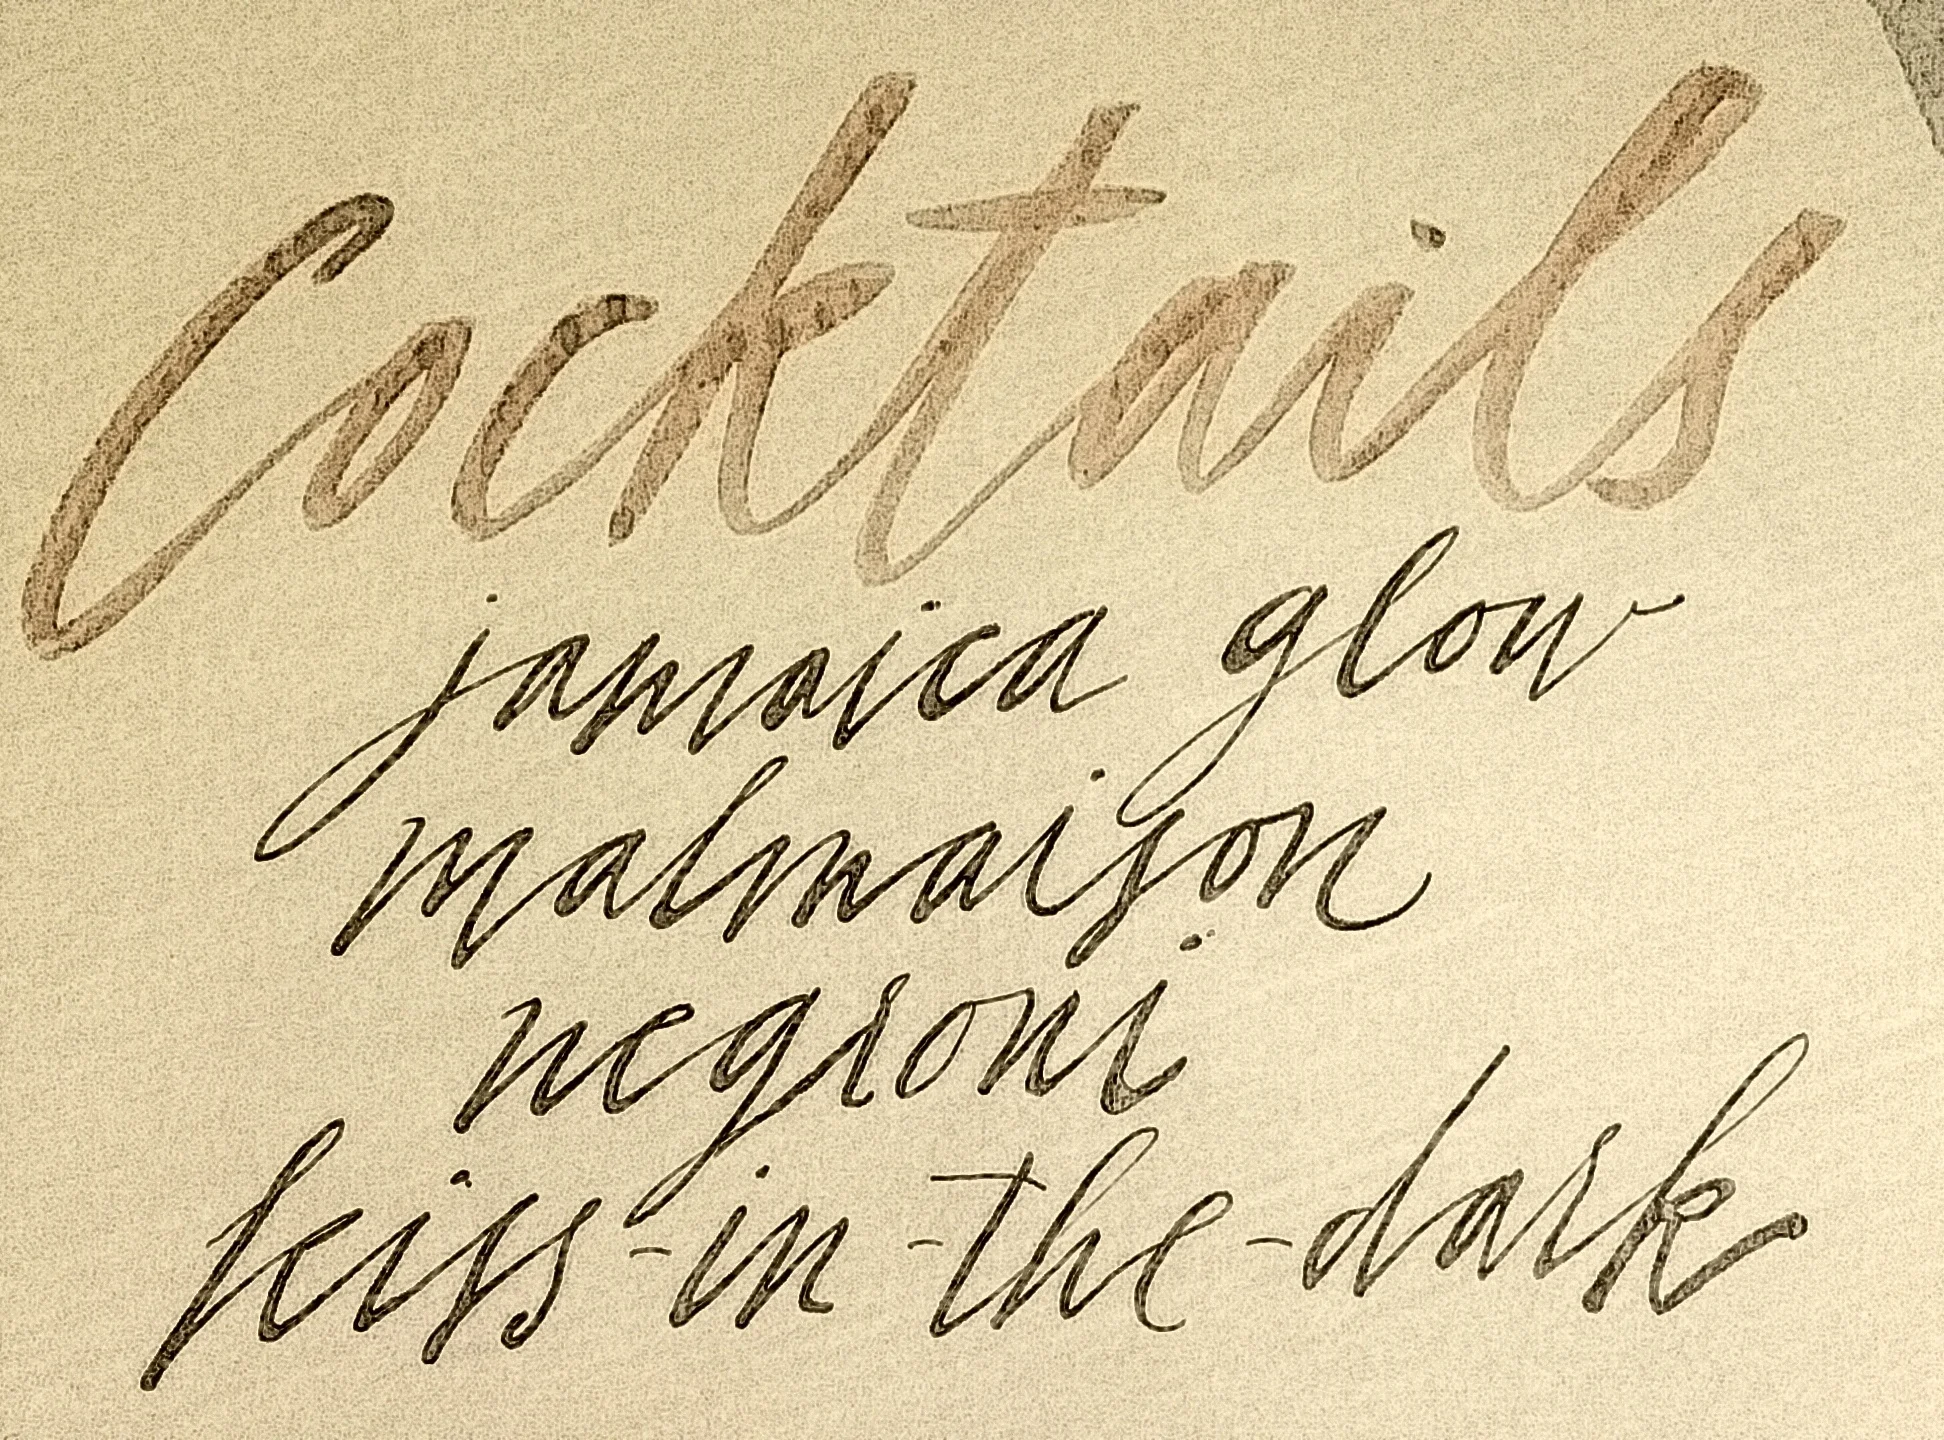 Cocktails
jamaica glow
malmaison
negroni
kiss-in-the-dark